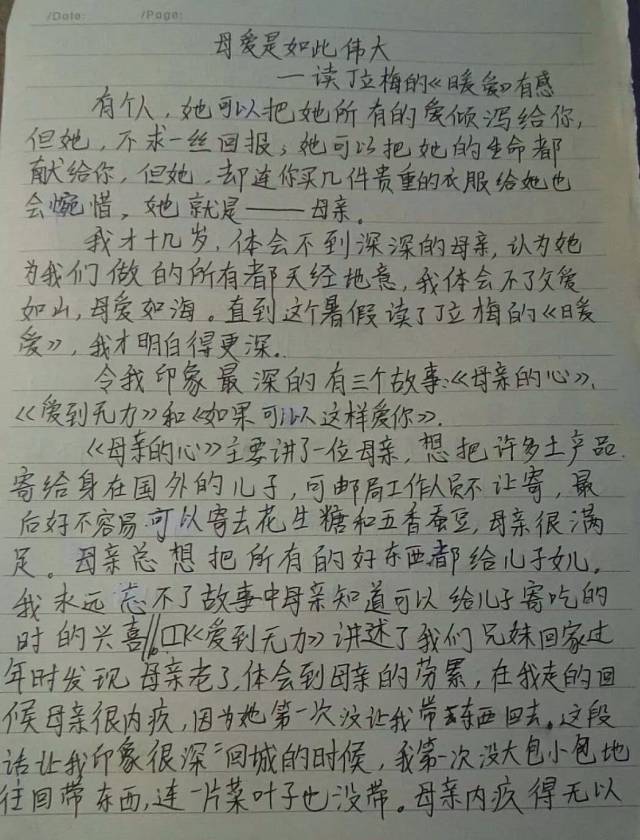 /Date: /Page:
母爱是如此伟大
—读丁立梅的《暖爱》有感
有个人，她可以把她所有的爱倾泻给你，
但她，不求一丝回报；她可以把她的生命都
献给你，但她，却连你买几件贵重的衣服给她也
会惋惜，她就是——母亲。
我才十几岁，体会不到深深的母亲，认为她
为我们做的所有都天经地意，我体会不了父爱
如山，母爱如海。直到这个暑假读了丁立梅的《暖
爱》，我才明白得更深。
令我印象最深的有三个故事：《母亲的心》，
《爱到无力》和《如果可以这样爱你》。
《母亲的心》主要讲了一位母亲，想把许多土产品
寄给身在国外的儿子，可邮局工作人员不让寄，最
后好不容易可以寄去花生糖和五香蚕豆，母亲很满
足。母亲总想把所有的好东西都给儿子女儿。
我永远忘不了故事中母亲知道可以给儿子寄吃的
时的兴喜《爱到无力》讲述了我们兄妹回家过
年时发现母亲老了，体会到母亲的劳累，在我走的回
候母亲很内疚，因为她第一次没让我带东西回去。这段
话让我印象很深"回城的时候，我第一次没大包小包地
往回带东西，连一片菜叶子也没带。母亲内疚得无以